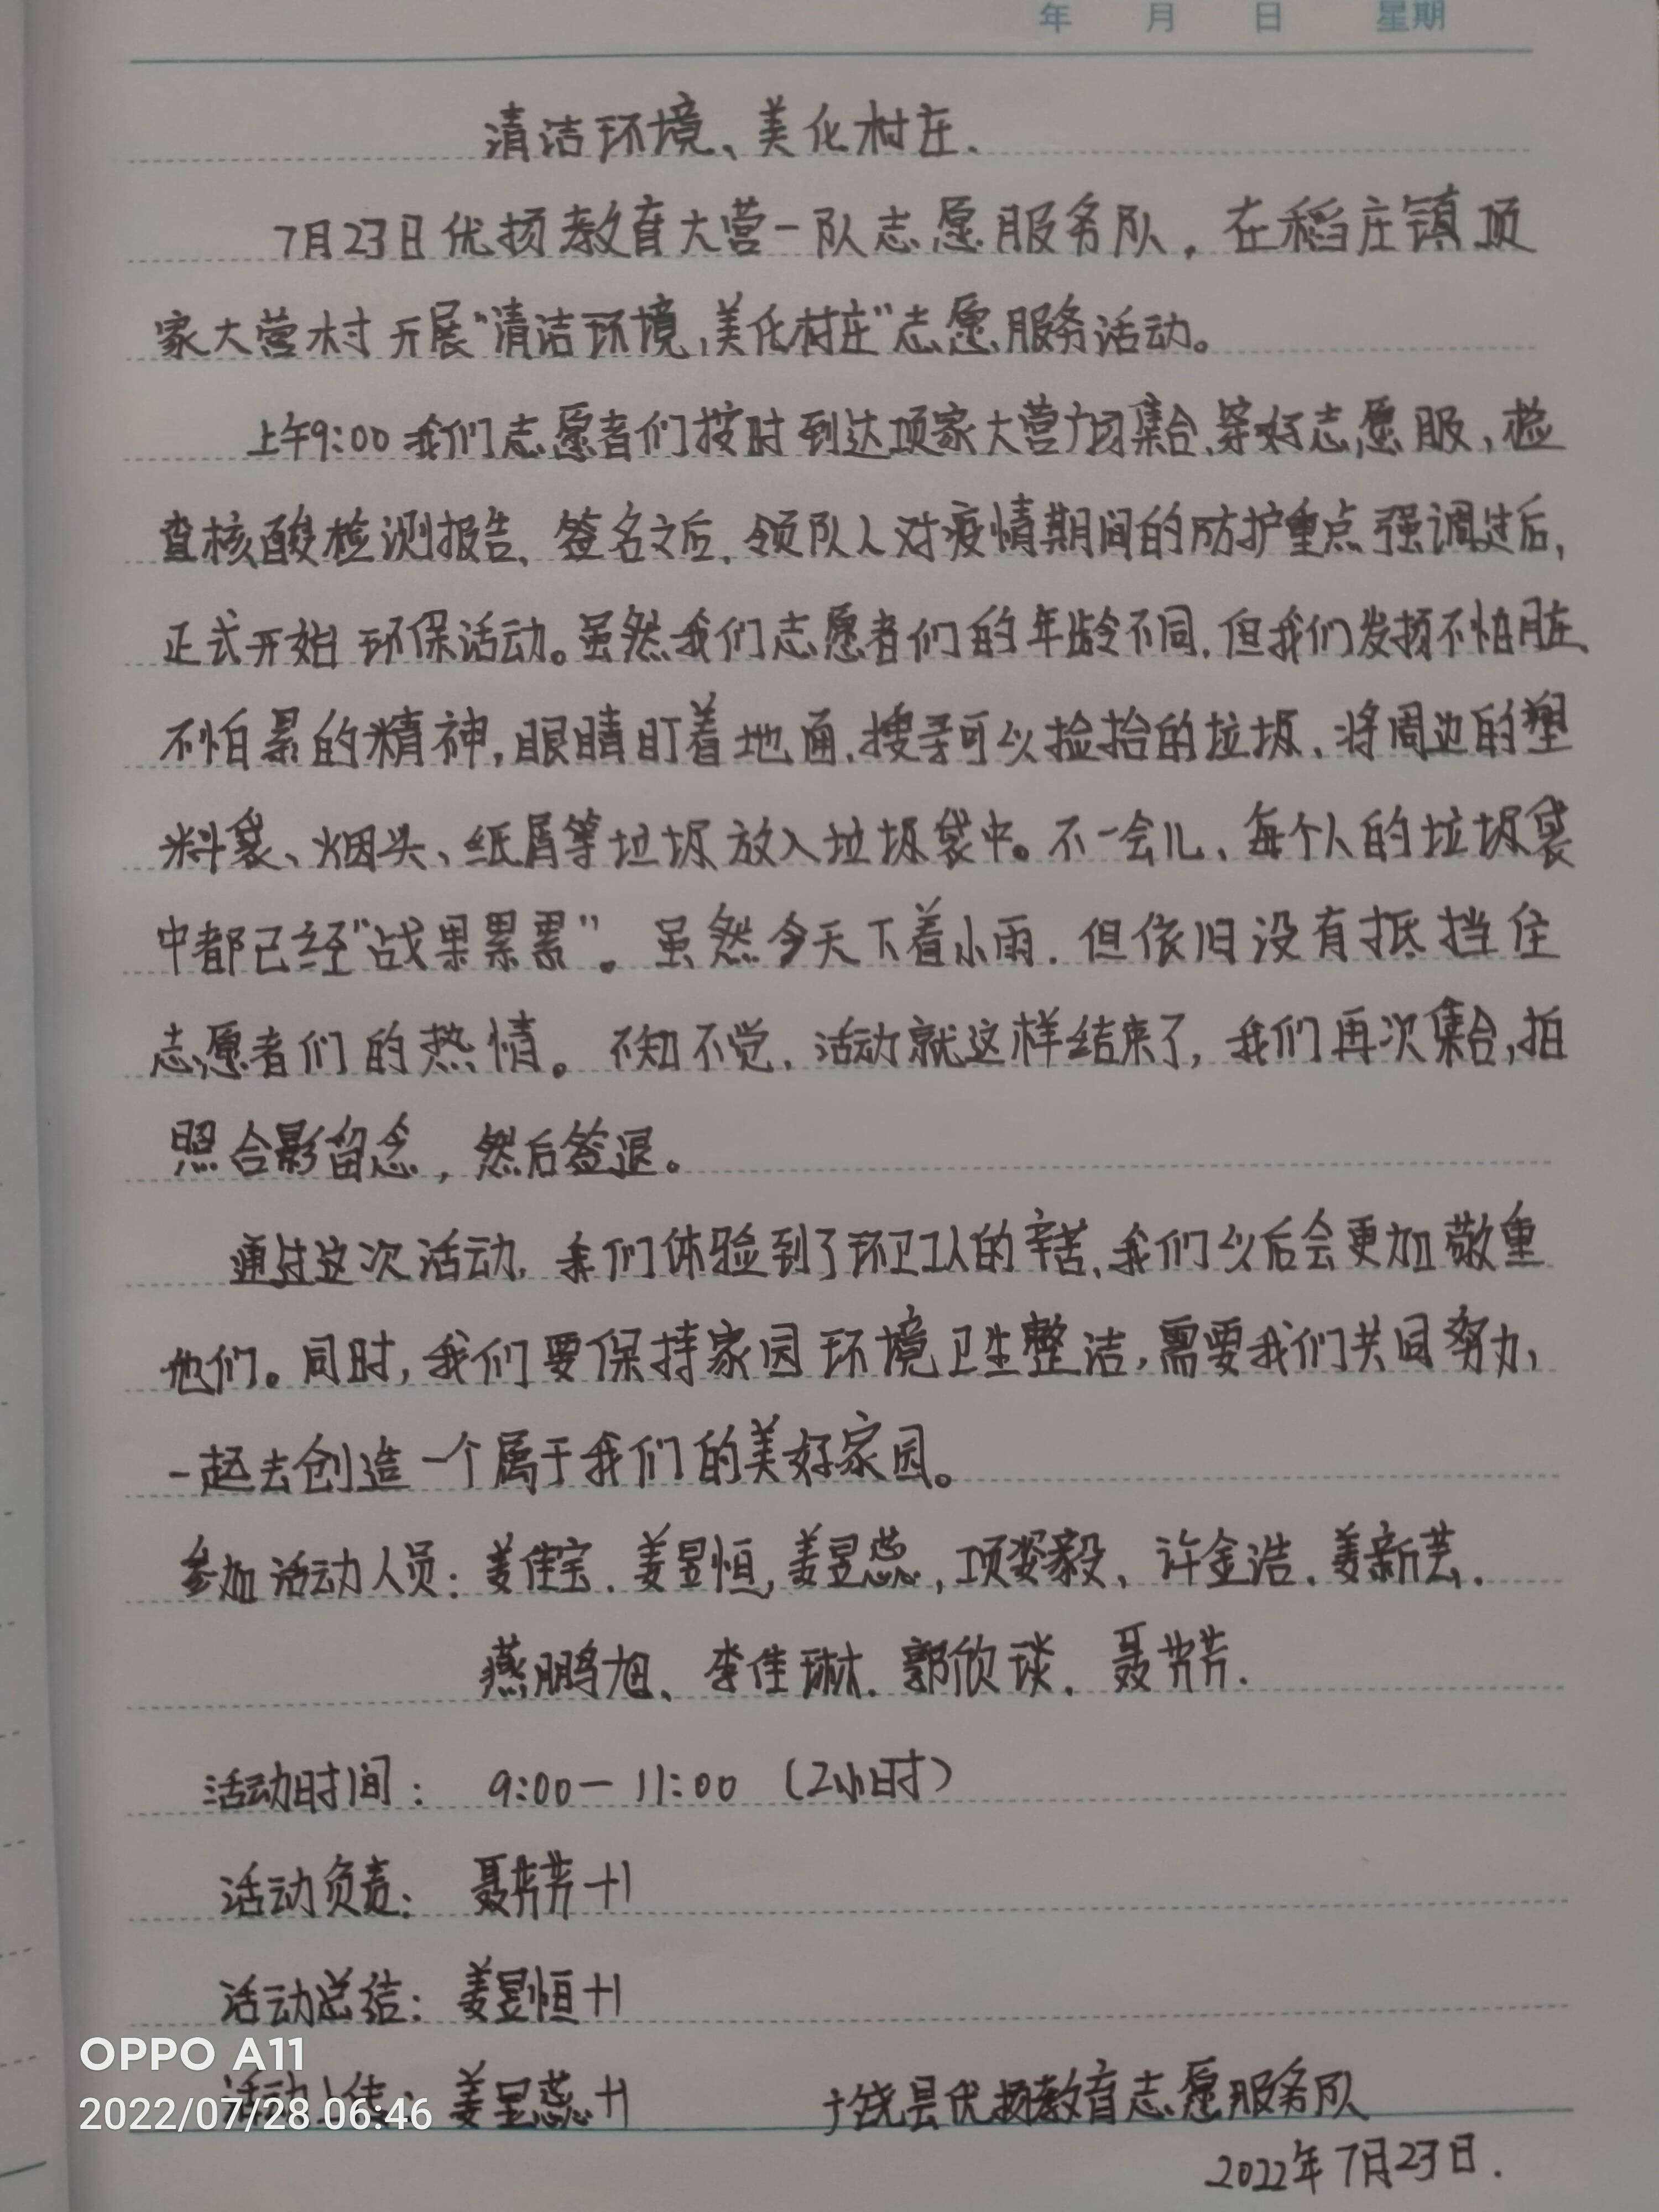 年 月 日 星期
清洁环境、美化村庄.
7月23日优扬教育大营一队志愿服务队，在稻庄镇项
家大营村开展“清洁环境，美化村庄”志愿服务活动。
上午9:00我们志愿者们按时到达项家大营广场集合、穿好志愿服，检
查核酸检测报告、签名之后，领队人对疫情期间的防护重点强调过后，
正式开始环保活动。虽然我们志愿者们的年龄不同，但我们发扬不怕脏、
不怕累的精神，眼睛盯着地面，搜寻可以捡拾的垃圾、将周边的塑
料袋、烟头、纸屑等垃圾放入垃圾袋中。不一会儿、每个人的垃圾袋
中都已经“战果累累”。虽然今天下着小雨，但依旧没有抵挡住
志愿者们的热情。不知不觉，活动就这样结束了，我们再次集合，拍
照合影留念，然后签退。
通过这次活动，我们体验到了环卫工人的辛苦、我们以后会更加敬重
他们。同时，我们要保持家园环境卫生整洁，需要我们共同努力，
一起去创造一个属于我们的美好家园。
参加活动人员：姜佳宝、姜昱恒，姜昱蕊，项姿毅、许金浩、姜新芸、
燕鹏旭、李佳琳、郭欣琰、聂芳芳.
活动时间： 9:00—11:00（2小时）
活动负责： 聂芳芳+1
活动总结：姜昱恒+1
活动上传：姜昱蕊+1 广饶县优扬教育志愿服务队
2022年7月23日.
OPPO A11
2022/07/28 06:46